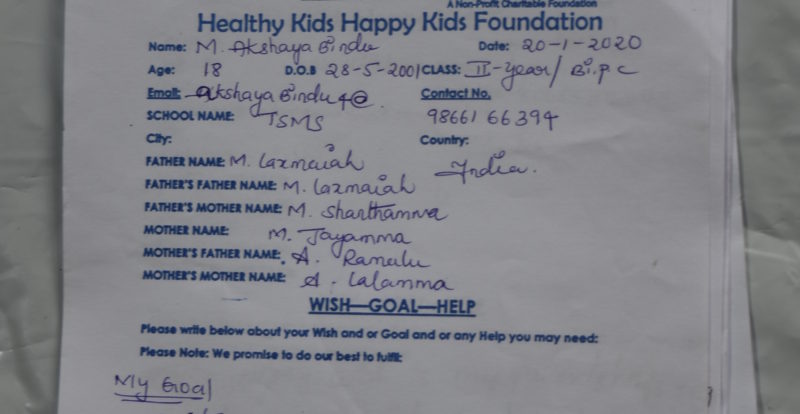 A Non-Profit Charitable Foundation
Healthy Kids Happy Kids Foundation
Name: M. Akshaya Bindu Date: 20-1-2020
Age: 18 D.O.B 28-5-2001 CLASS: II-year/ Bi.p.c
Email: akshayaBindu4@. Contact No.
SCHOOL NAME: TSMS 98661 66394
City: Country:
FATHER NAME: M. Laxmaiah India.
FATHER'S FATHER NAME: M. Lazmaiah
FATHER'S MOTHER NAME: M. Shanthamma
MOTHER NAME: M. Jayamma
MOTHER'S FATHER NAME: A. Ramulu
MOTHER'S MOTHER NAME: A. Lalamma
WISH—GOAL—HELP
Please write below about your Wish and or Goal and or any Help you may need:
Please Note: We promise to do our best to fulfil:
My Goal